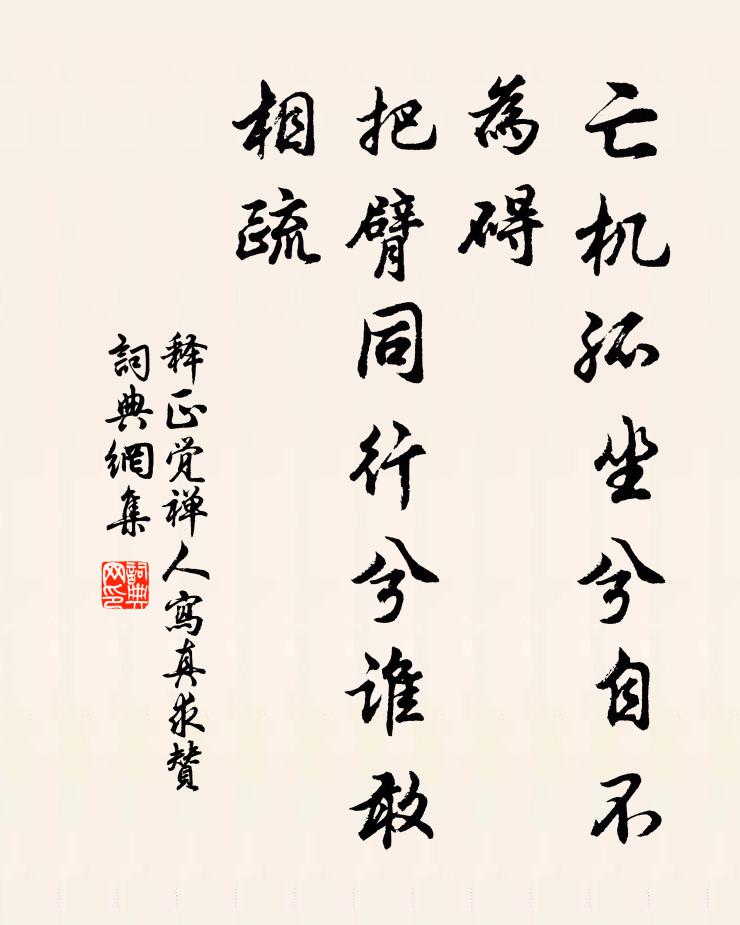 亡机孤坐兮自不
為碍
把臂同行兮谁敢
相疏
释正觉禅人寫真求赞
詞典網集
詞典网印